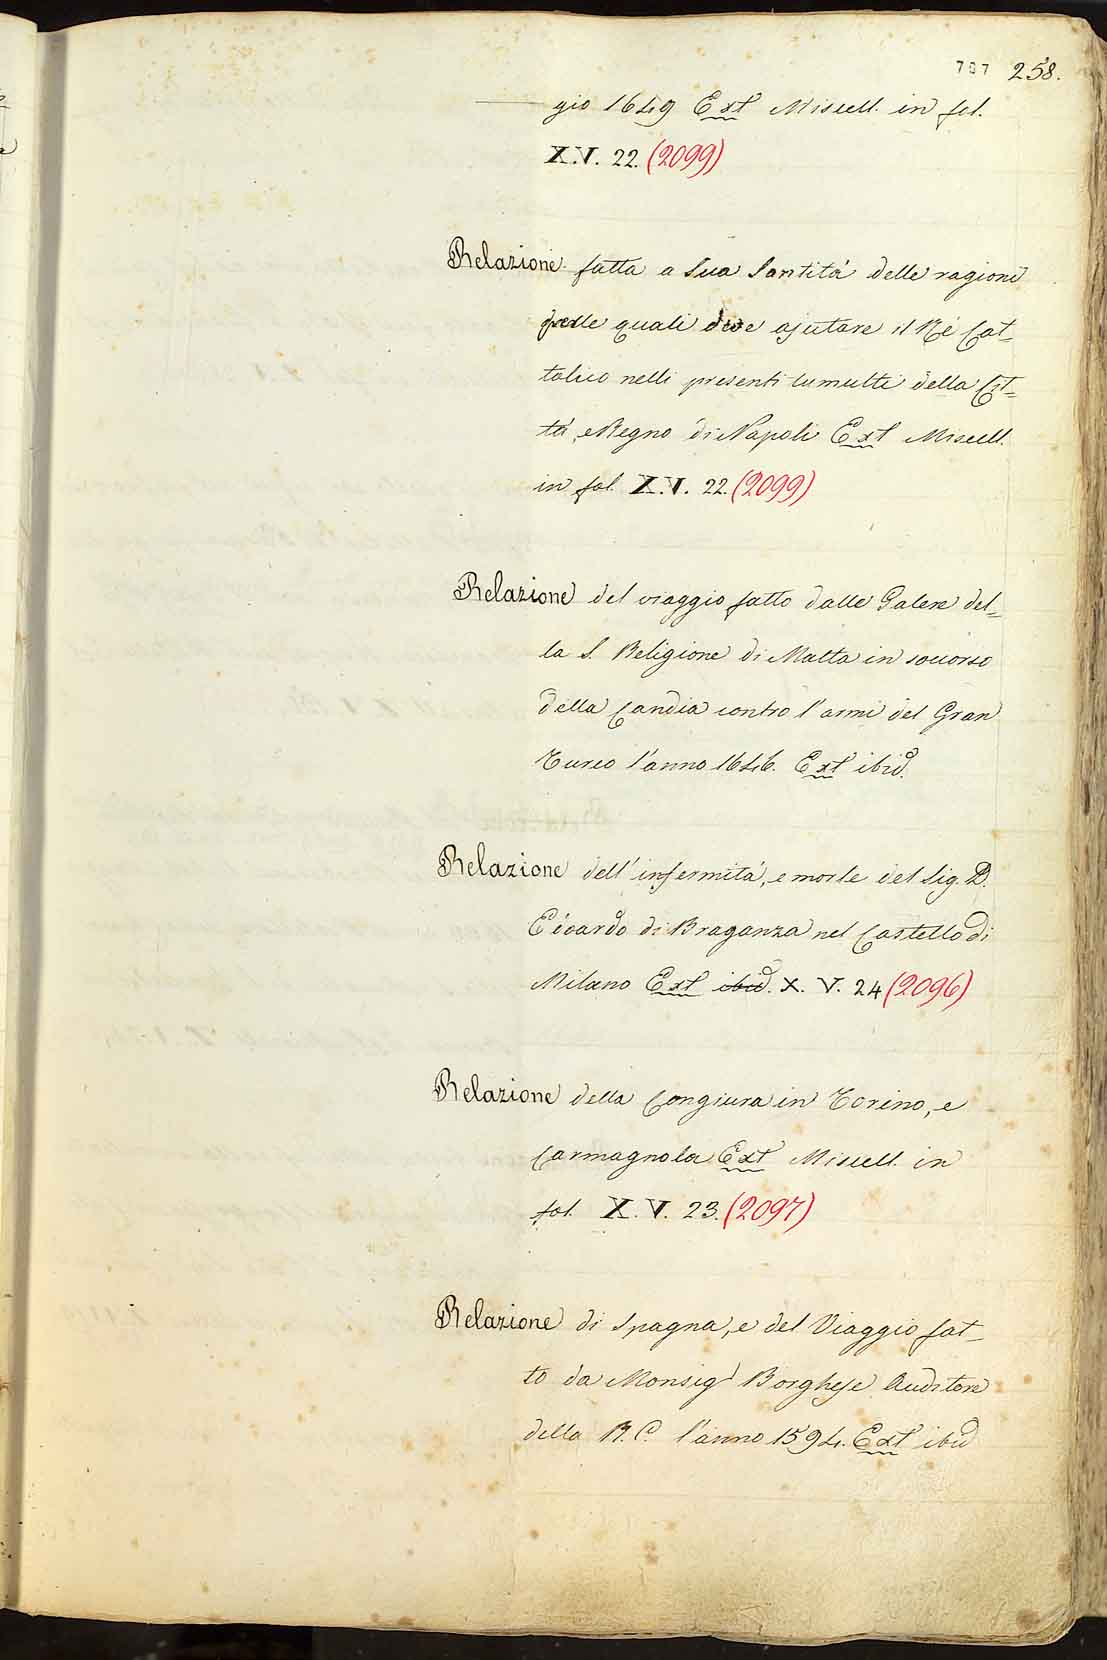 787 258.
gio 1649 Ext Miscell. in fol.
X.V. 22. (2099)
Relazione fatta a Sua Santità delle ragioni
perle quali deve ajutare il Rè Cat=
tolico nelli presenti tumulti della Cit=
tà, e Regno di Napoli Ext Miscell.
in fol. X.V. 22. (2099)
Relazione del viaggio fatto dalle Galere del=
la S. Religione di Malta in soccorso
della Candia contro l'armi del Gran
Turco l'anno 1646. Ext ibid.
Relazione dell'infermità, e morte del Sig. D.
Edoardo di Braganza nel Castello di
Milano Ext ibid. X. V. 24 (2096)
Relazione della Congiura in Torino, e
Carmagnola Ext Miscell. in
fol. X.V. 23. (2097)
Relazione di Spagna, e del Viaggio fat=
to da Monsigr Borghese Auditore
della R.C. l'anno 1594. Ext ibid